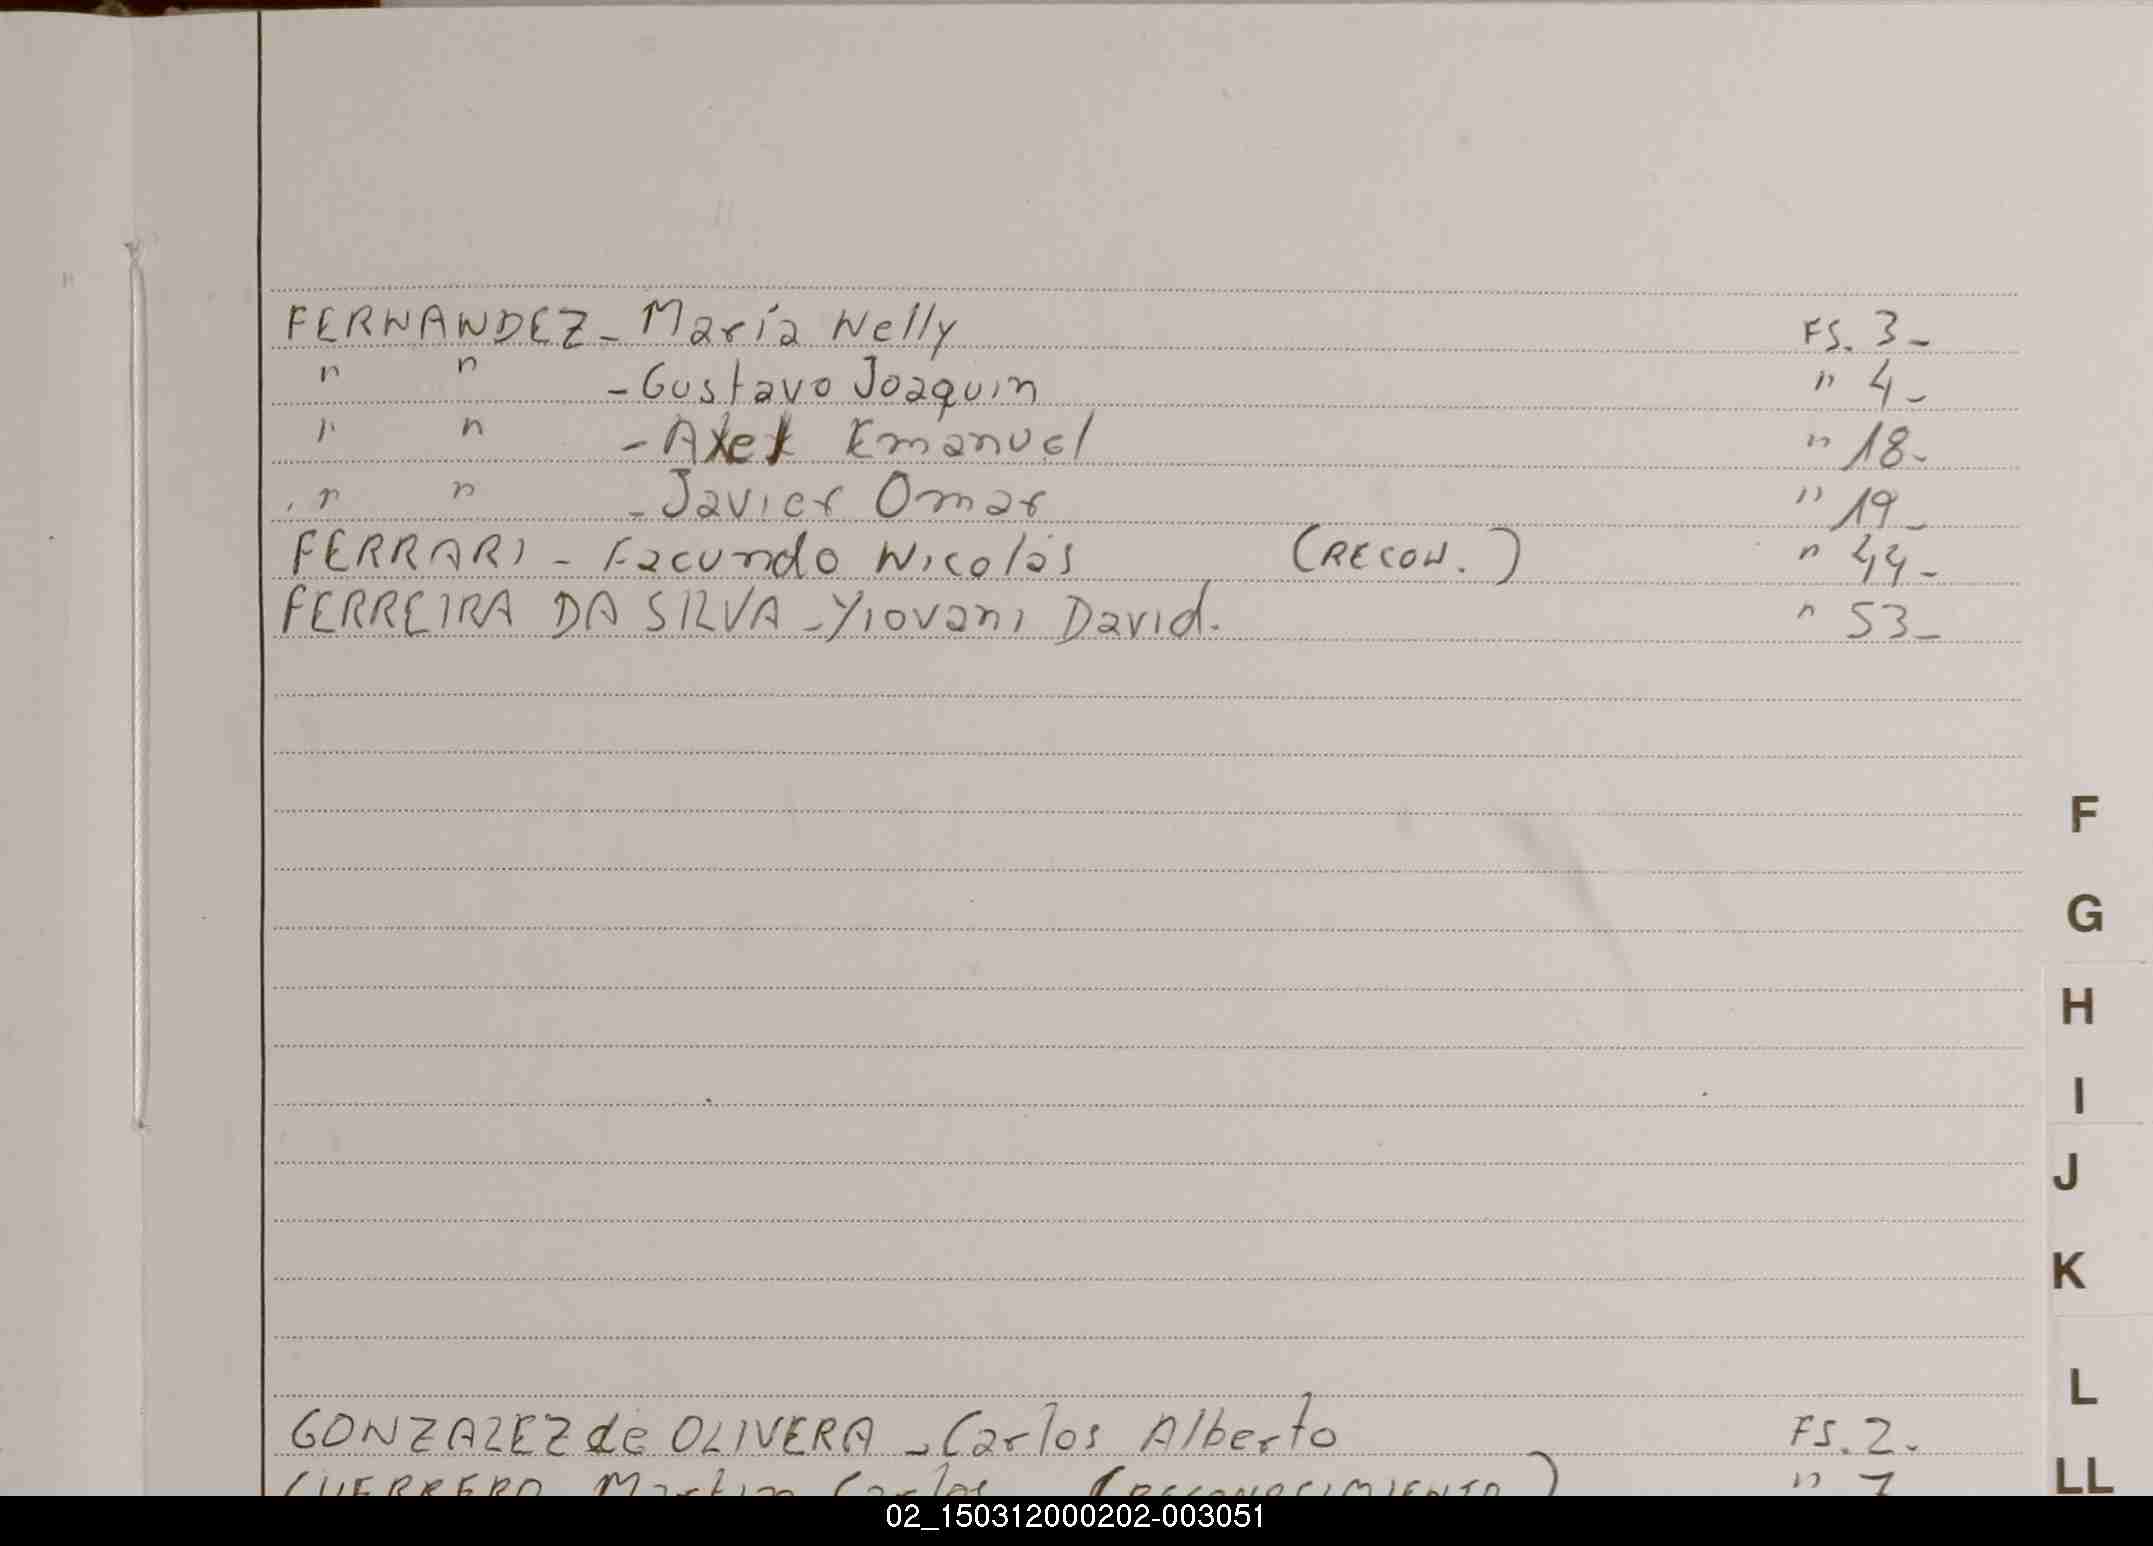 FERNANDEZ - María Nelly FS. 3 -
" " - Gustavo Joaquin " 4 -
" " - Axel Emanuel " 18 -
" " - Javier Omar " 19 -
FERRARI - Facundo Nicolás (RECON.) " 44 -
FERREIRA DA SILVA - Yiovani David. " 53 -
F
G
H
I
J
K
L
GONZALEZ de OLIVERA - Carlos Alberto FS. 2 -
LL
GUERRERO Martin Carlos (RECONOCIMIENTO) " 7
02_150312000202-003051